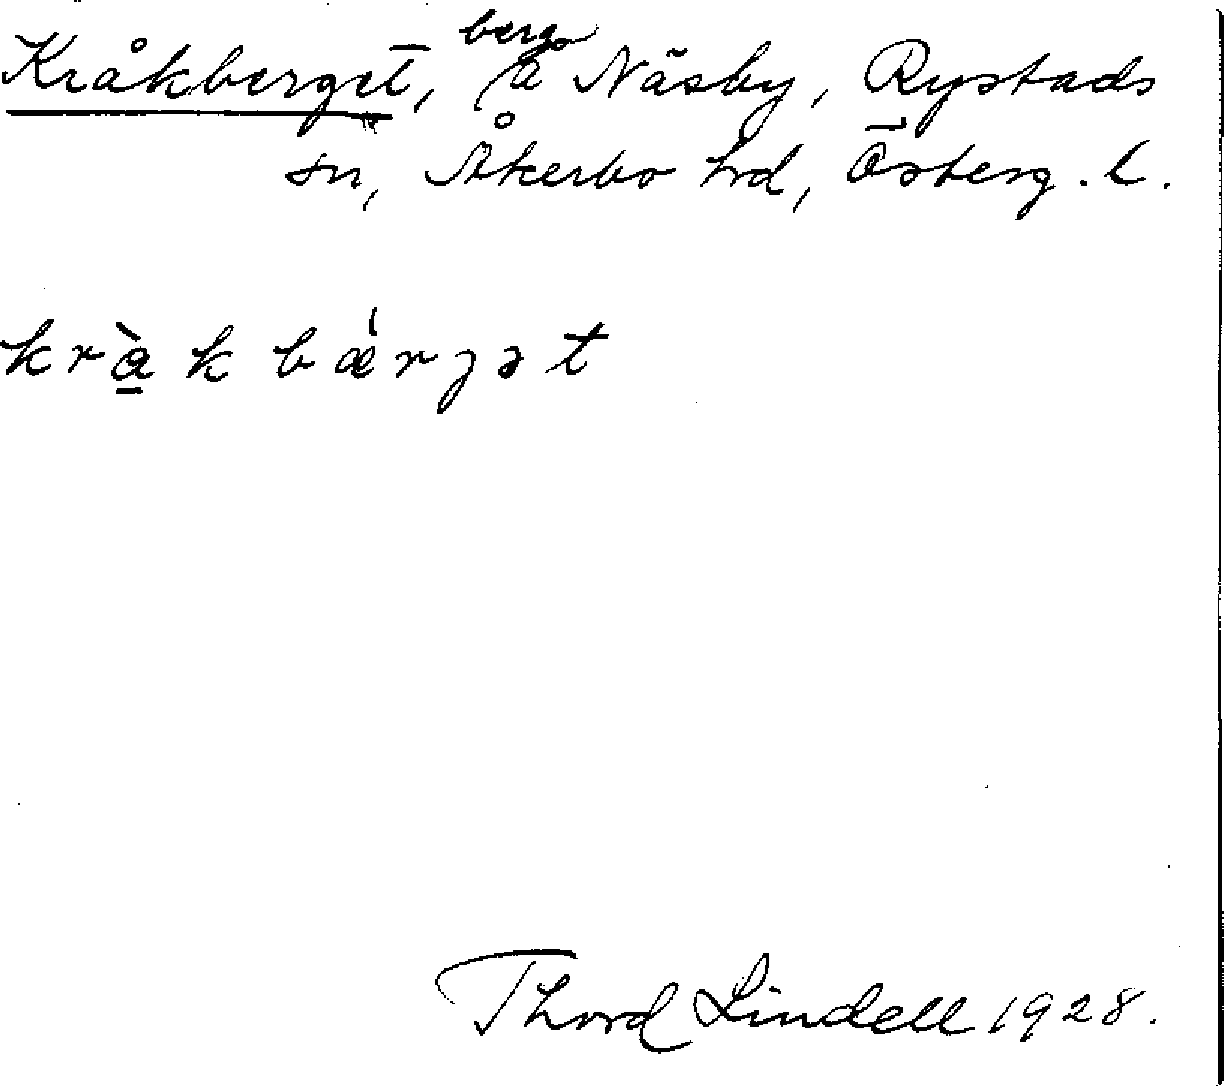 Kråkberget, berg å Näsby, Rystads
sn, Åkerbo hd, Österg. l.
krà̱kbǽrgət
Thord Lindell 1928.